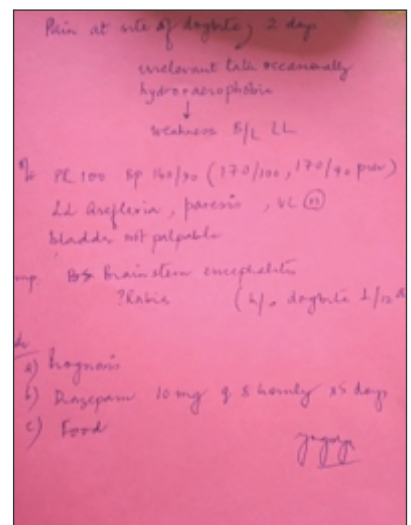 Pain at site of dogbite, 2 days
irrelevant talk occasionally
hydro+aerophobia
↓
weakness B/L LL
O/E PR 100 BP 160/90 (170/100, 170/90 prev)
LL Areflexia, paresis, UL (n)
bladder not palpable
Imp. Brainstem encephalitis
?Rabies (h/o dogbite 1/12
a) Prognosis
b) Diazepam 10 mg q 8 hourly x5 days
c) Food